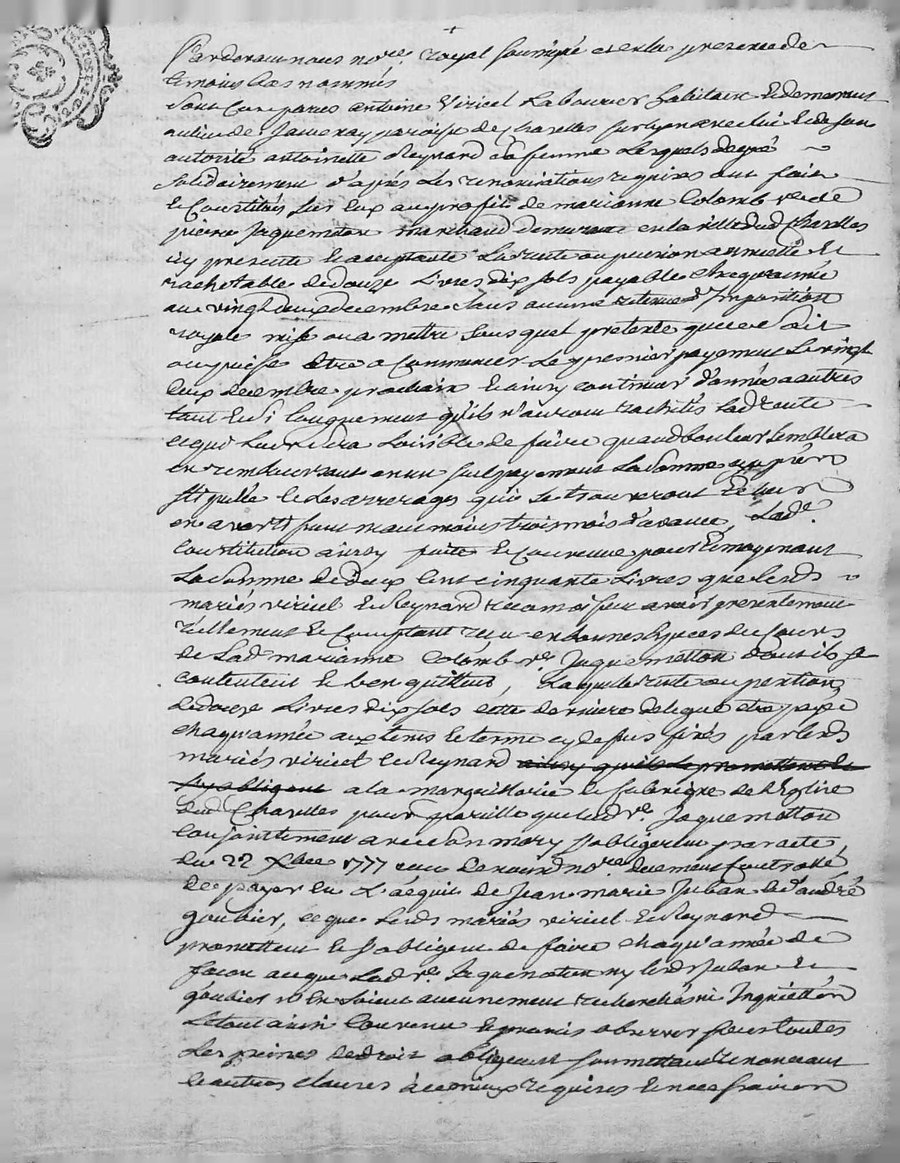 Pardevant nous no.re royal soussigné et en la presence de
temoins bas nommés
sont comparus antoine Viricel Laboureur habitant & demeurant
au lieu de paroisse de chazelles sur lyon avec lui & de son
autorité antoinette Reynard sa femme Lesquels de gré
solidairement d'après Les renonciations requises ont fait
& Constitués sur eux au profit de marianne Colomb v.e de
pierre Jaquemetton marchand demeurant en la ville dud Chazelles
icy presente & acceptante La rente ou pension annuelle &
rachetable de douze Livres dix sols payable chaque année
au vingt deux decembre sans aucune retenue d'Imposition
royale mise ou a mettre sous quel pretexte que ce soit
ou puisse etre a Commencer Le premier payement Le vingt
deux decembre prochain & ainsy continuer d'années a autres
tant & si Longuement qu'ils n'auront rachetés Lad rente
ce qui Leur sera Loisible de faire quand bon leur semblera
en remboursant en un seul payement La somme cy après
stipulée & Les arrerages qui se trouveront
en avertissant au moins trois mois d'avance, Lad.e
Constitution ainsy faitte & Convenue pour & moyenant
La somme de deux Cent cinquante Livres que Lesds
mariés viricel & Reynard reconnoissent avoir presentement
réellement & Comptant reçu en bonnes Especes du Cours
de Lad marianne Colomb v.e Jaquemetton dont ils se
contentent & Len quittent, Laquelle rente ou pention
de douze Livres dix sols cette derniere deleguée etre payée
chaqu'année aux tems & terme cy dessus fixés par Lesds
mariés viricel & Reynard ainsy qu'ils Le promettent &
s'y obligent a la marguillerie & fabrique de L'Eglise
dud Chazelles pour pareille que Lad v.e Jaquemetton
Conjointement avec son mary s'obligerent par acte
du 22 Xbre 1777 reçu no.re duement Controllé
de payer en L'acquit de Jean marie Juban & d'andré
goubier, ce que Lesds mariés viricel & Reynard
promettent & s'obligent de faire chaqu'année de
façon a ce que Lad v.e Jaquemetton ny Lesds Juban &
goubier n'en soient aucunement recherchés ni Inquiettés
Le tout ainsi Convenu & promis observer sous toutes
Les peines de droit obligeant soumettant renonçant
& autres clauses a ce mieux requises & necessaires